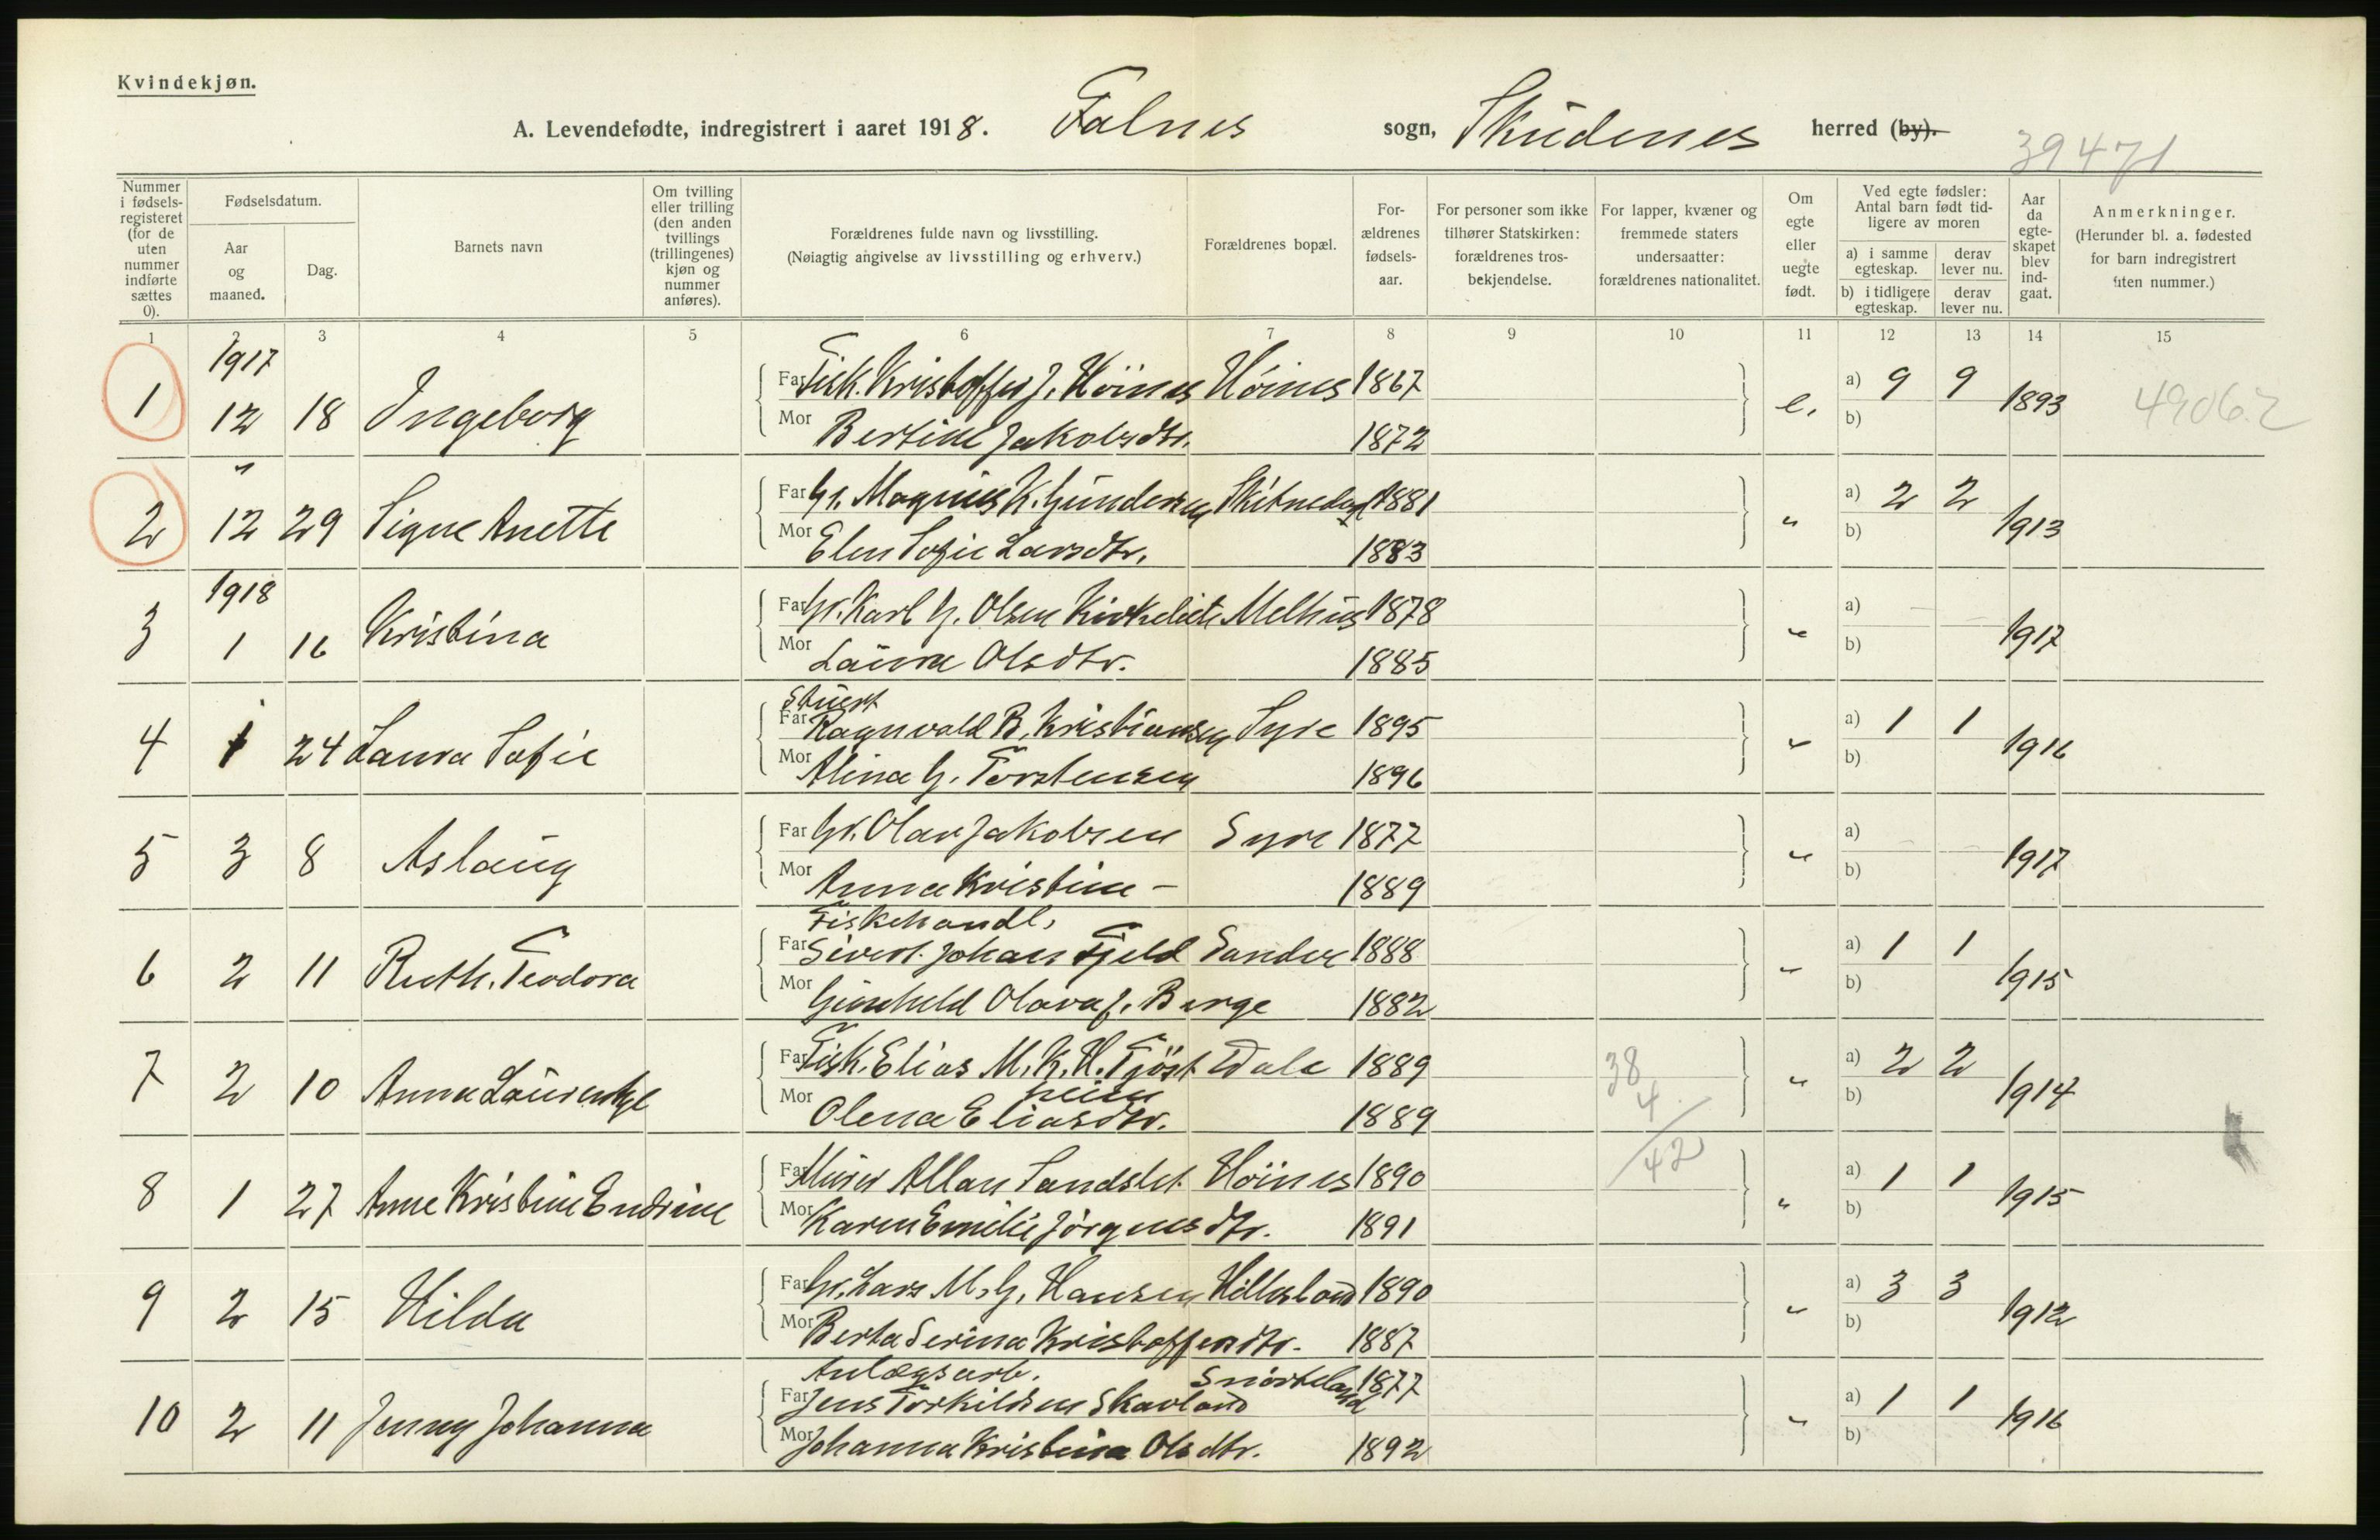 Kvindekjøn.
A. Levendefødte, indregistrert i aaret 1918. Falnes sogn, Skudenes herred (by).
39471
Nummer i fødsels-registeret (for de uten nummer indførte sættes 0).
Fødselsdatum.
Aar og maaned.
Dag.
Barnets navn
Om tvilling eller trilling (den anden tvillings (trillingenes) kjøn og nummer anføres).
Forældrenes fulde navn og livsstilling.
(Nøiagtig angivelse av livsstilling og erhverv.)
Forældrenes bopæl.
For-ældrenes fødsels-aar.
For personer som ikke tilhører Statskirken: forældrenes tros-bekjendelse.
For lapper, kvæner og fremmede staters undersaatter: forældrenes nationalitet.
Om egte eller uegte født.
Ved egte fødsler: Antal barn født tid-ligere av moren
a) i samme egteskap.
derav lever nu.
b) i tidligere egteskap.
derav lever nu.
Aar da egte-skapet blev ind-gaat.
Anmerkninger.
(Herunder bl. a. fødested for barn indregistrert uten nummer.)
1 2 3 4 5 6 7 8 9 10 11 12 13 14 15
1917
1 12 18 Ingeborg Far Fisk. Kristoffer J. Höines Höines 1867 e. a) 9 9 1893 49062
Mor Bertine Jakobsdtr. 1872 b)
"
2 12 29 Signe Anette Far Gr. Magnus K. Gundersen 1881 " a) 2 2 1913
Mor Elen Sofie Larsdtr. 1883 b)
1918
3 1 16 Kristina Far Gr. Karl G. Olsen Kirkeleite Melhus 1878 " a) — — 1917
Mor Laura Olsdtr. 1885 b)
Stuert
4 1 24 Laura Sofie Far Ragnvald B. Kristiansen Syre 1895 " a) 1 1 1916
Mor Alina G. Torstensen 1896 b)
5 3 8 Aslaug Far Gr. Olav Jakobsen Syre 1877 " a) — — 1917
Mor Anna Kristine — 1889 b)
Fiskehandl.
6 2 11 Ruth. Teodora Far Sivert Johan Fjeld Sandve 1888 " a) 1 1 1915
Mor Gunhild Olava J. Berge 1882 b)
7 2 10 Anna Laurentze Far Fisk. Elias M. K. H. Tjöst Dale 1889 38 " a) 2 2 1914
heim
Mor Olena Eliasdtr. 1889 4 b)
42
8 1 27 Anne Kristine Endrine Far Murer Allan Sandslet Höines 1890 " a) 1 1 1915
Mor Karen Emilie Jörgensdtr. 1891 b)
9 2 15 Hilda Far Gr. Lars M. G. Hansen Hillesland 1890 " a) 3 3 1912
Mor Berta Serina Kristoffersdtr. 1887 b)
Anlægsarb. Snörteland 1877
10 2 11 Jenny Johanna Far Jens Torkildsen Skavland " a) 1 1 1916
Mor Johanna Kristina Olsdtr. 1892 b)